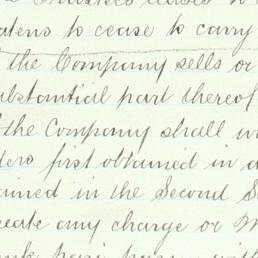 atens to cease to carry
the Company sells or
substantial part thereof
the Company shall
ders first obtained in
ained in the Second
create any charge or